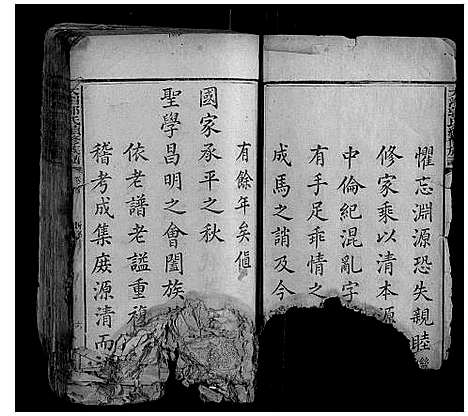 懼忘淵源恐失親睦
修家乘以清本源
中倫紀混亂字
有手足乖情之
成馬之誚及今
有餘年矣值
國家承平之秋
聖學昌明之會闔族
依老譜老諡重複
稽考成集庻源清而